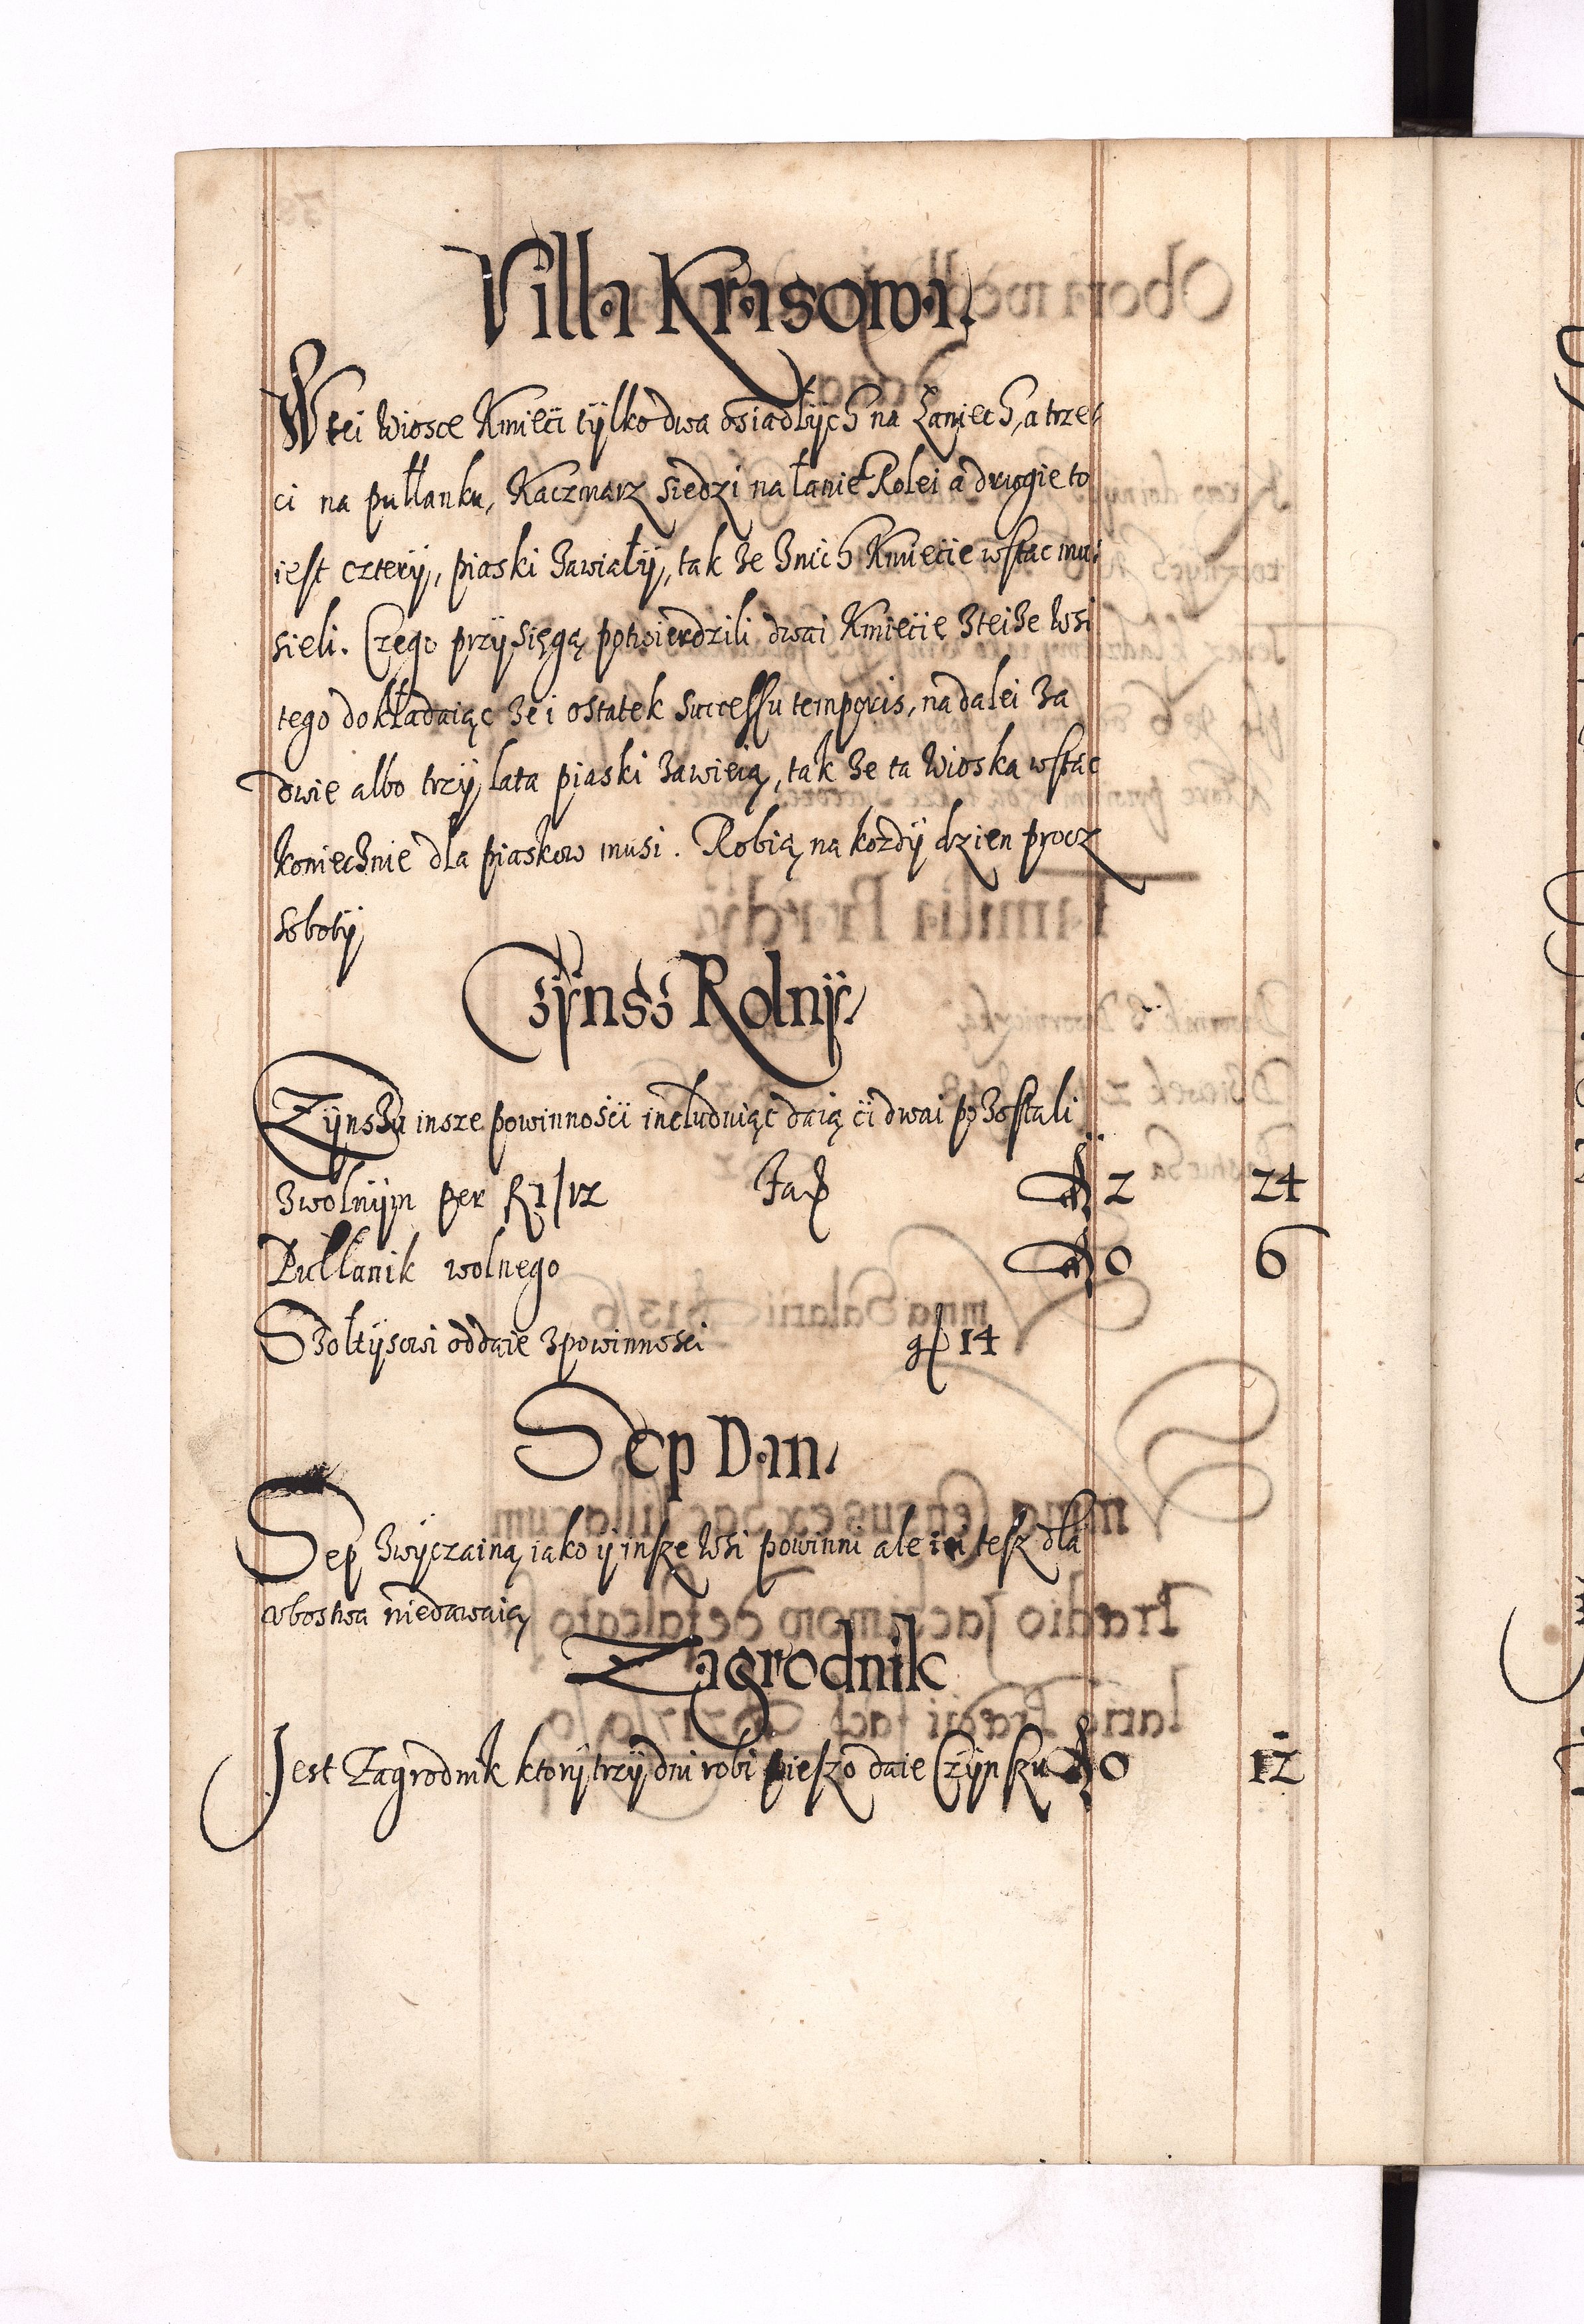 Villa Krasowa.
W tei Wiosce Kmieci tÿlko dwa osiadłÿch na Łaniech, a trze-
ci na pułłanku, Kaczmarz siedzi na łanie Rolei a drugie to
iest czterÿ, piaski zawiałÿ, tak że znich Kmiecie wstac mu-
sieli. Czego przÿsięgą potwierdzili dwai Kmiecie zteize Wsi
tego dokładaiąc że i ostatek successu temporis, na dalei za
dwie albo trzÿ lata piaski zawieią, tak że ta Wioska wstac
koniecznie dla piaskow musi. Robią na kozdÿ dzien procz
sobotÿ
Czÿnss Rolnÿ
Zÿnszu insze powinnoscii includuiąc daią ci dwai pozostali
zwolnÿm per fl 1/12 Fac fl 2 24
Pułłanik wolnego fl 0 6
Szołtÿsowi oddaie zpowinnosci gr 14
Sep Dan
Sep zwÿczainą iako ÿ insze Wsi powinni ale tesz dla
vbostwa niedawaią
Zagrodnik
Jest Zagrodnik ktorÿ trzÿ dni robi pieszo daie Czÿnszu fl 0 12